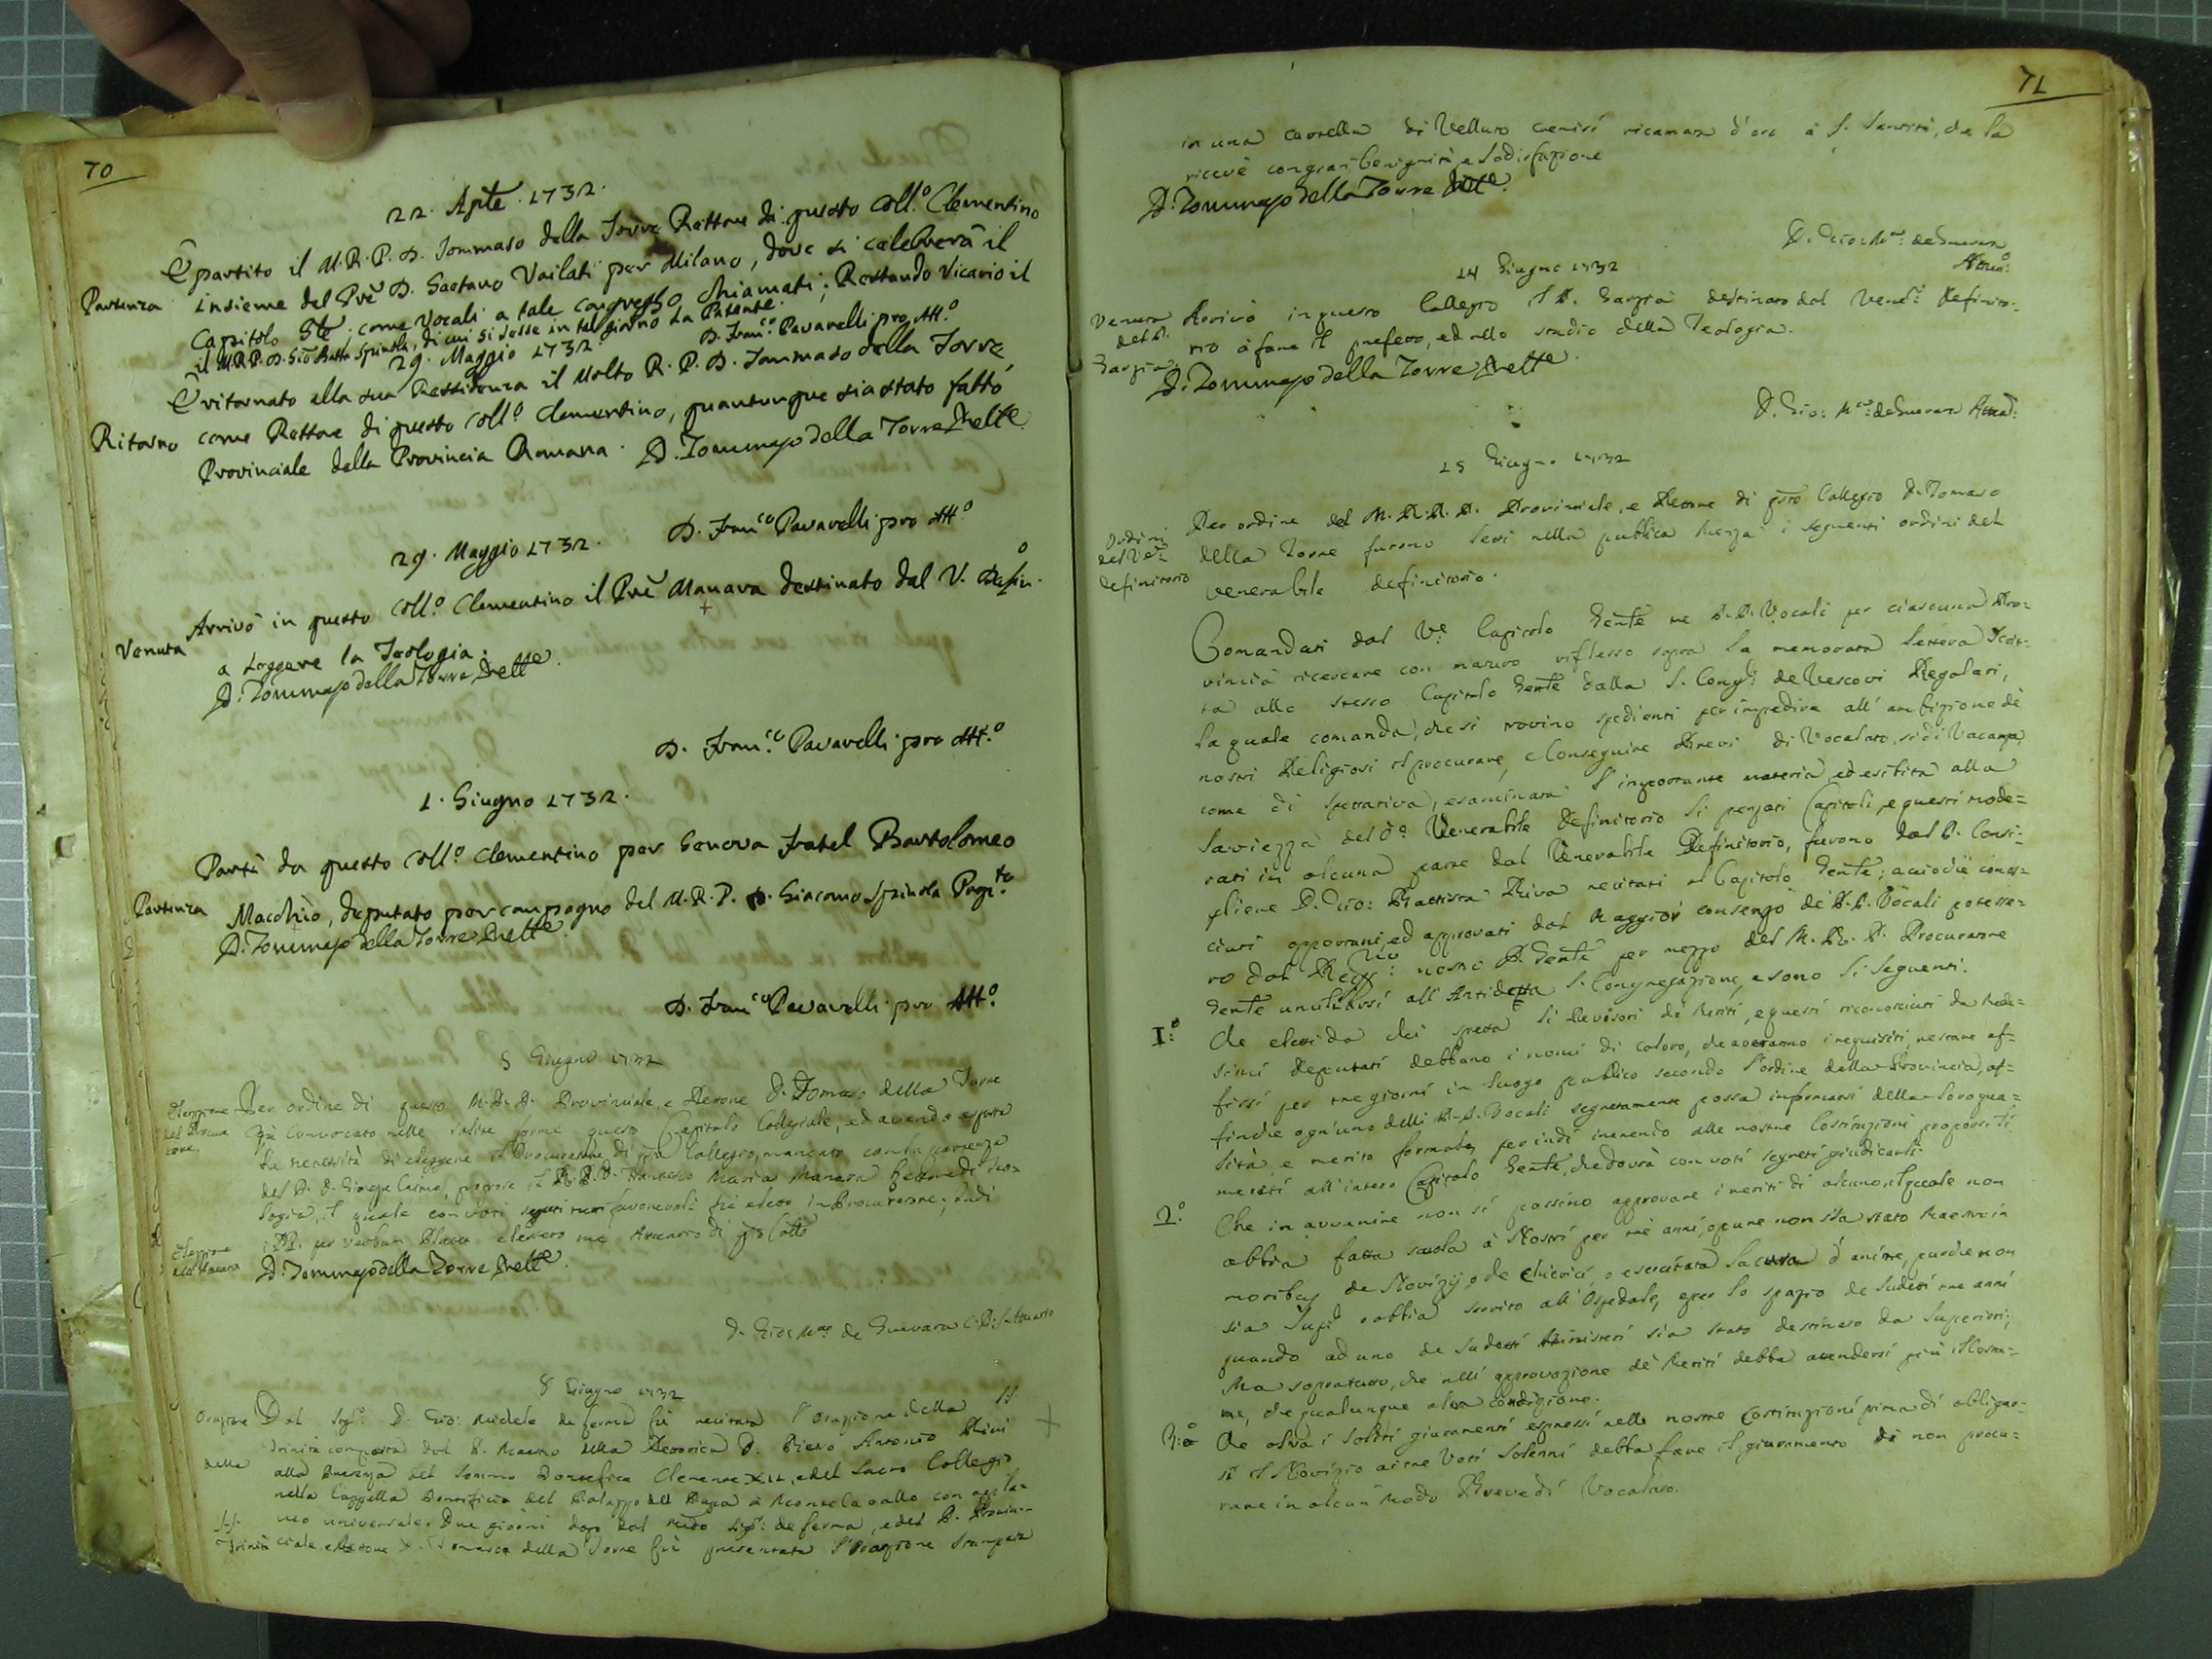 70
22. Aprte. 1732.
È partito il M.R.P.D. Tommaso della Torre Rettore di questo Coll.º Clementino
Partenza insieme del Prē D. Gaetano Vailati per Milano, dove si celebrerà il
Capitolo Gle, come Vocali a tale congresso chiamati; Restando Vicario il
il M.R.P.D. Gio Batta Spinola, di cui si lesse in tal giorno la Patente.
D. Franco Pavarelli pro Att.º
29. Maggio 1732.
È ritornato alla sua Residenza il Molto R.P.D. Tommaso della Torre,
Ritorno come Rettore di questo Coll.º Clementino, quantunque sia stato fatto
Provinciale della Provincia Romana. D. Tommaso della Torre Rette
D. Franco Pavarelli pro Att.º
29. Maggio 1732.
Arrivò in questo Coll.º Clementino il Prē Manara destinato dal V. Defin.º
Venuta
a Leggere la Teologia.
D. Tommaso della Torre Rette.
D. Fran.co Pavarelli pro Att.º
1. Giugno 1732.
Partì da questo Coll.º Clementino per Genova Fratel Bartolomeo
Partenza Macchiò, deputato per compagno del M.R.P. D. Giacomo Spinola Prepi.to
D. Tommaso della Torre Rette.
D. Franco Pavarelli pro Att.º
5 Giugno 1732
Elezzione Per ordine di questo M.R.P. Provinciale, e Rettore D. Tomaso della Torre
del Procura tore fù Convocato nelle solite forme questo Capitolo Collegiale, ed avendo esposta
la necessità di eleggere il Procuratore di qsto Collegio, mancato con la partenza
del P. D. Giuseppe Caimo, propose il P. D. Francesco Maria Manara Lettore di Teo=
logia, il quale con voti segreti tutti favorevoli fù eletto in Procuratore; indi
i PP. per verbum Placet elessero me Attuario di qsto Collo
Elezzione
dell'Attuara D. Tommaso della Torre Rette.
D. Gio: Mra de Guevara C.R.S. Attuario
8 Giugno 1732
Orazione Dal Sigr. D. Gio: Michele de ferma fù recitata l'Orazione della SS.
Trinità composta dal P. Maestro della Rettorica D. Piero Antonio Ricci
della alla Presenza del Sommo Pontefice Clemente XII, e del Sacro Collegio
nella Cappella Pontificia del Palazzo del Papa à Monte Cavallo con appla=
SS. uso universale. Due giorni dopo dal sudo Sigr: de ferma, e dal P. Provin=
Trinità ciale e Rettore D. Tomaso della Torre fù presentata l'Orazione Stampata
71
in una cartella di Velluto cremisi ricamata d'oro à S. Santità, che la
ricevè con gran benignità, e sodisfazione
D. Tommaso della Torre Rette.
D. Gio: Mra: de Guevara
Attua:
14 Giugno 1732
Venuta Arrivò in questo Collegio il P. Garzia destinato dal Vener: Definito=
del P.
Garzia rio à fare il prefetto, ed allo studio della Teologia.
D. Tommaso della Torre Rette.
D. Gio: Mra: de Guevara Attua:
15 Giugno 1732
Ordini Per ordine del M.R.P. Provinciale, e Rettore di qsto Collegio D. Tomaso
del Ve: della Torre furono letti nella publica Mensa i seguenti ordini del
definitorio venerabile definitorio.
Comandati dal Ve Capitolo Gente tre P.P. Vocali per ciascuna Pro=
vincia ricercare con maturo riflesso sopra la memorata lettera Scrit=
ta allo stesso Capitolo Gente dalla S. Congne de Vescovi Regolari,
la quale comanda, che si trovino spedienti per impedire all'ambizione dè
nostri Religiosi il procurare, e Conseguire Brevi di Vocalato, sì di Vacanza,
come di spettativa, esaminata l'importante materia, ed esibita alla
saviezza del do Venerabile Definitorio li pensati Capitoli, e questi mode=
rati in alcuna parte dal Venerabile Definitorio, furono dal P. Consi=
gliere D. Gio: Battista Riva recitati al Capitolo Gente; acciochè conos=
ciuti opportuni, ed approvati dal Maggior consenso dè P.P. Vocali potesse=
ro dal Rmo: nostro P. Gente per mezzo del M.R.P. Procuratore
Gente umiliarsi all'Antidetta S. Congregazione, e sono li seguenti.
I:º Che eletti da chi spetta li Revisori di Meriti, e questi riconosciuti da Mede=
simi deputati debbano i nomi di coloro, che averanno i requisiti, restare af=
fissi per tre giorni in luogo publico secondo l'ordine della Provincia, af=
finche ogn'uno delli P.P. Vocali segretamente possa informarsi della loro qua=
lità, e merito formale, per indi inerendo alle nostre Costituzioni proposti li
meriti all'intero Capitolo Gente, che dovrà con voti segreti giudicarli.
2.º Che in avvenire non si possino approvare i meriti di alcuno, il quale non
abbia fatta scuola à Nostri per trè anni, oppure non sia stato Maestro in
moribus de Novizij, o de Chierici, o esercitata la cura d'anime, purche non
sia Supe o abbia servito all'Ospedale, e per lo spazio de sudetti tre anni
quando ad uno de sudetti Ministeri sia stato destinato da Superiori;
Ma sopratutto, che nell'approvazione dè Meriti debba attendersi più il Costu=
me, che qualunque altra condizione.
3:º Che oltra i soliti giuramenti espressi nelle nostre Costituzioni prima di obligar=
si il Novizio ai tre Voti solenni debba fare il giuramento di non procu=
rare in alcun modo Breve di Vocalato.